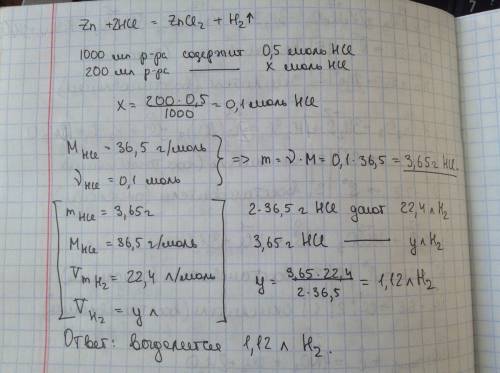 Zn + 2HCl = ZnCl₂ + H₂↑
1000 мл р-ра содержит 0,5 моль HCl
200 мл р-ра —— x моль HCl
X = 200·0,5 / 1000 = 0,1 моль HCl
M HCl = 36,5 г/моль
ν HCl = 0,1 моль
=> m = ν·M = 0,1·36,5 = 3,65 г HCl.
m HCl = 3,65 г
M HCl = 36,5 г/моль
V m H₂ = 22,4 л/моль
V H₂ = y л
2·36,5 г HCl дают 22,4 л H₂
3,65 г HCl —— y л H₂
y = 3,65·22,4 / 2·36,5 = 1,12 л H₂
Ответ: выделяется 1,12 л H₂.